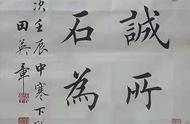 誠所
石為
次壬辰中寒下
田英章